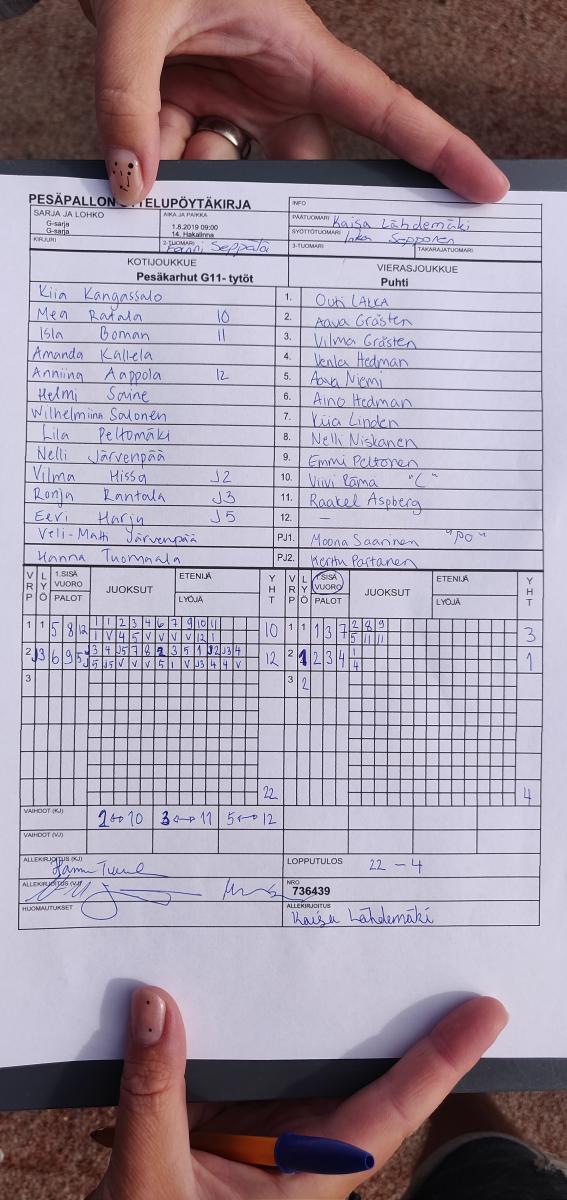 PESÄPALLON OTTELUPÖYTÄKIRJA
INFO
SARJA JA LOHKO
G-sarja
G-sarja
AIKA JA PAIKKA
1.8.2019 09:00
14. Hakalinna
PÄÄTUOMARI Kaisa Lähdemäki
SYÖTTÖTUOMARI Inka Sepponen
KIRJURI
2-TUOMARI Fanni Seppälä
3-TUOMARI
TAKARAJATUOMARI
KOTIJOUKKUE
Pesäkarhut G11- tytöt
VIERASJOUKKUE
Puhti
Kiia Kangassalo 1. Outi Lakka
Mea Ratala 10 2. Aava Grästen
Isla Boman 11 3. Vilma Grästen
Amanda Kallela 4. Venla Hedman
Anniina Aappola 12 5. Aava Niemi
Helmi Saine 6. Aino Hedman
Wilhelmiina Salonen 7. Kiia Linden
Lila Peltomäki 8. Nelli Niskanen
Nelli Järvenpää 9. Emmi Peltonen
Vilma Hissa J2 10. Viivi Rama "C"
Ronja Rantala J3 11. Raakel Aspberg
Eevi Harju J5 12. —
Veli-Matti Järvenpää PJ1. Moona Saarinen "PO"
Hanna Tuomaala PJ2. Kerttu Partanen
VRP LYÖ 1.SISÄ VUORO PALOT JUOKSUT ETENIJÄ LYÖJÄ YHT VRP LYÖ 1.SISÄ VUORO PALOT JUOKSUT ETENIJÄ LYÖJÄ YHT
1 1 5 8 12 1 1 2 3 4 6 7 9 10 11 10 1 1 1 3 7 2 8 9 3
1 V 4 5 V V V V 12 1 5 11 11
2 J3 6 9 5 J3 4 J5 7 8 2 3 5 1 J2 J3 4 12 2 1 2 3 4 1 1
J5 J5 V V V 5 1 V J3 4 4 V 4
3 3 2
22 4
VAIHDOT (KJ) 2↔10 3↔11 5↔12
VAIHDOT (VJ)
ALLEKIRJOITUS (KJ)
LOPPUTULOS 22 - 4
ALLEKIRJOITUS (VJ)
NRO
736439
HUOMAUTUKSET
ALLEKIRJOITUS
Kaisa Lähdemäki